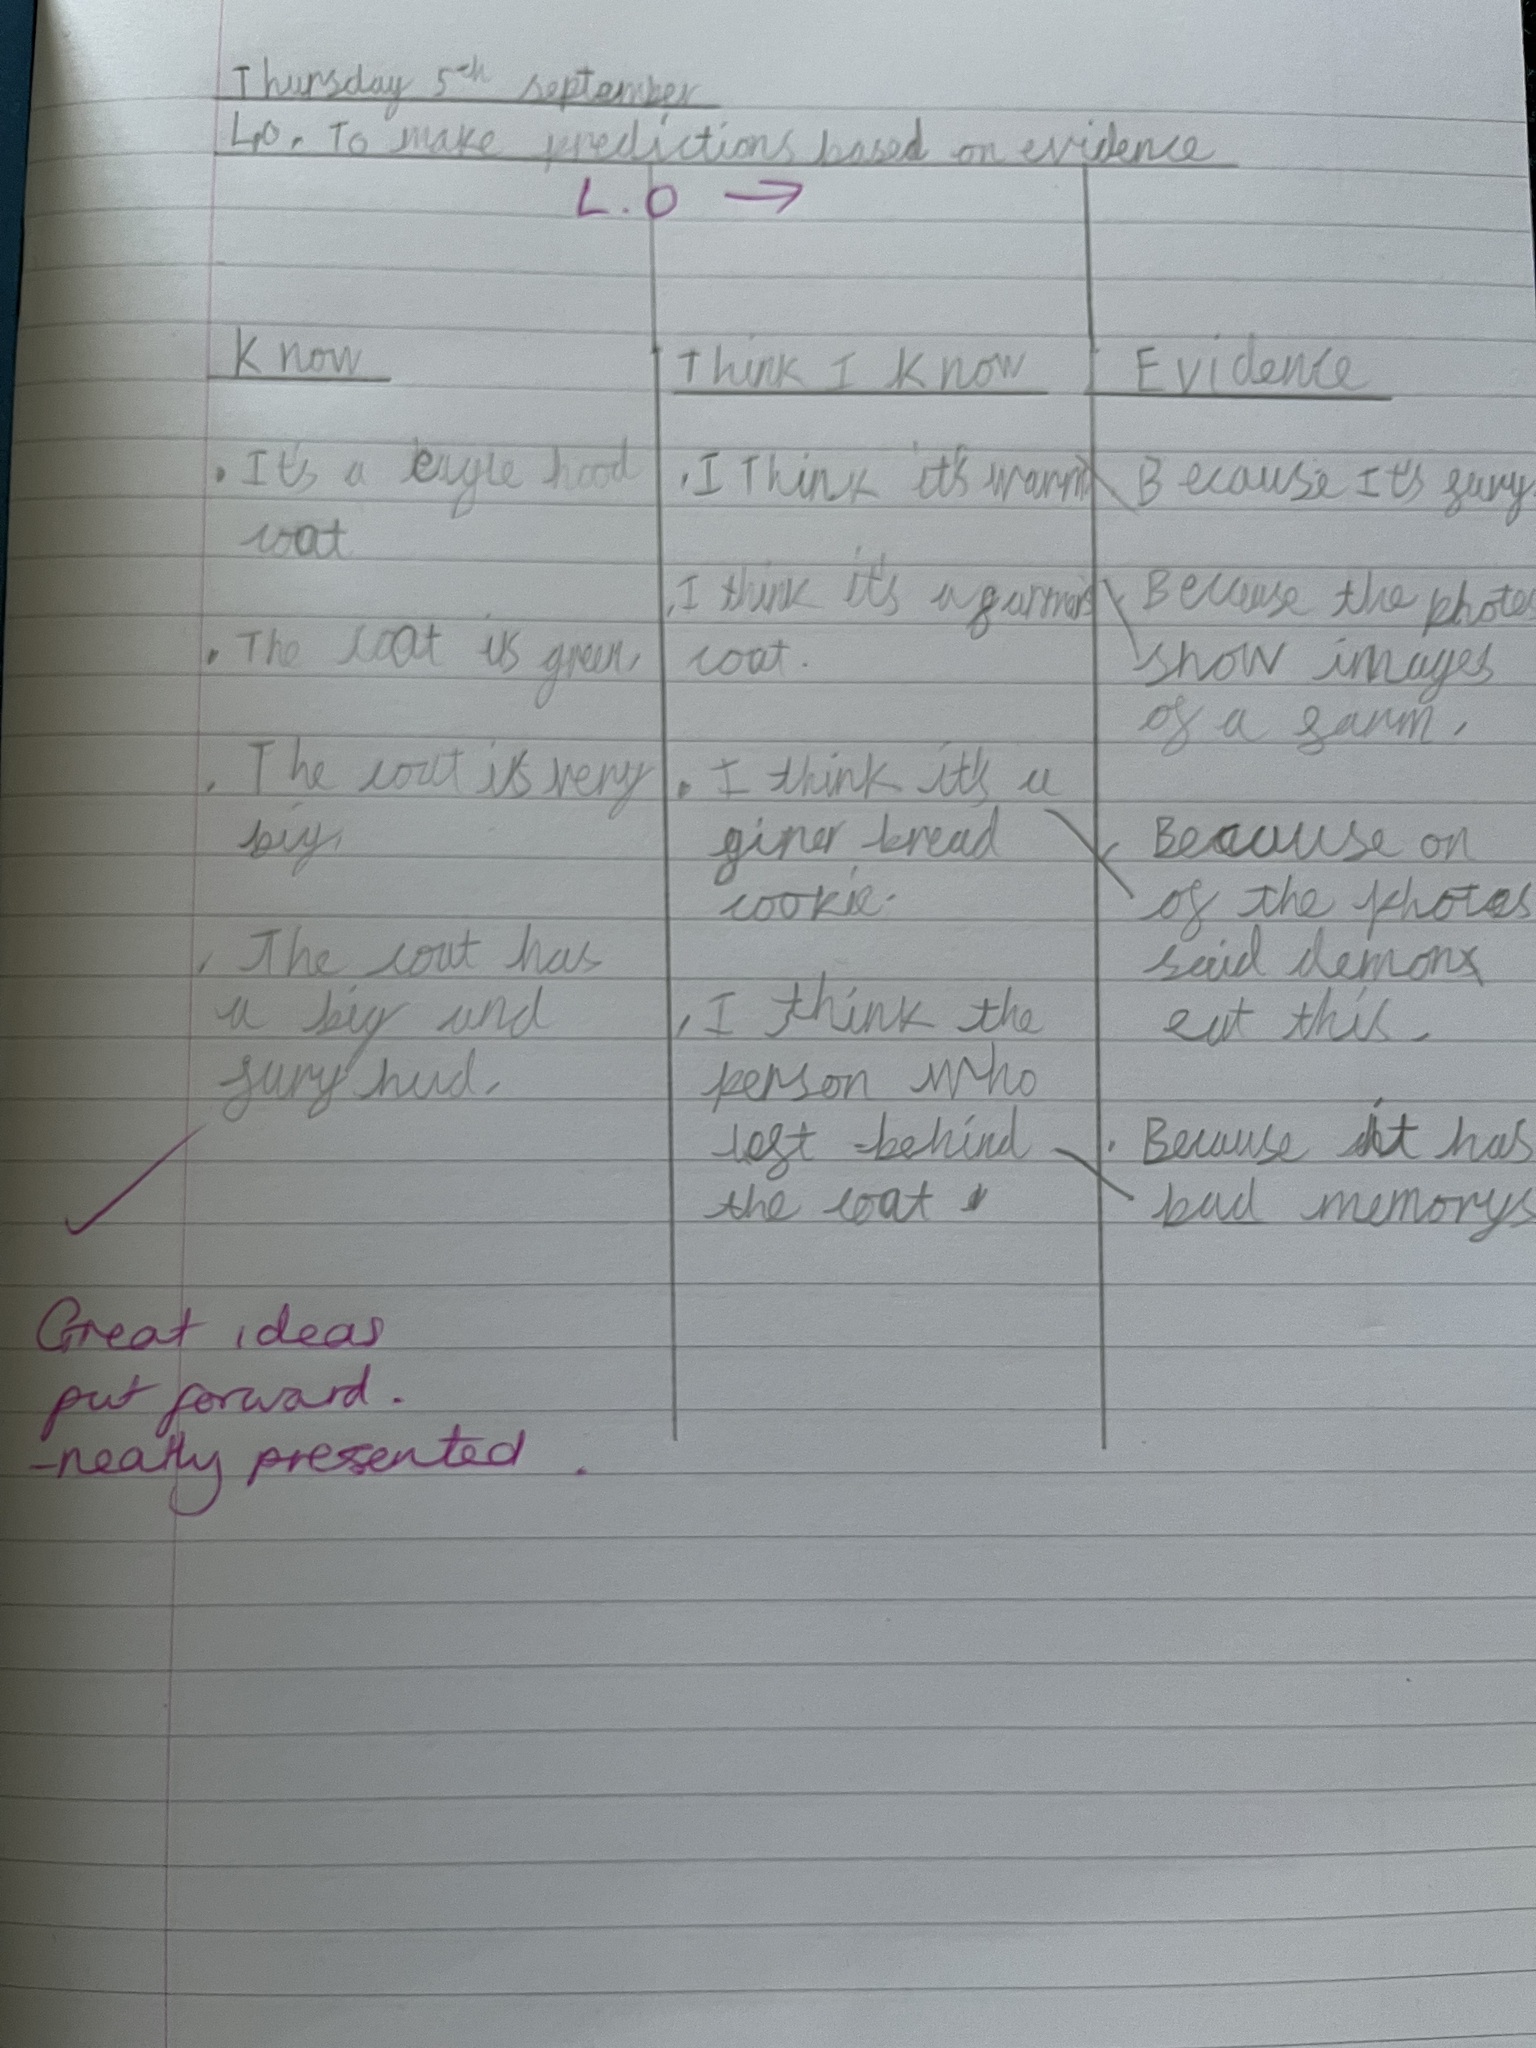 Thursday 5th september
L.O. To make predictions based on evidence
L.O →
Know
. It's a eagle hood
coat
. The coat is green.
. The coat is very
big.
. The coat has
a big and
fury hud.
Think I know
. I Think it's warm
. I think it's a farmers
coat.
. I think it's a
giner bread
cookie.
. I think the
person who
left behind
the coat
Evidence
Because It's fury
Because the photos
show images
of a farm.
Because on
of the photos
said demons
eat this.
. Because it has
bad memorys
Great ideas
put forward.
-neatly presented.